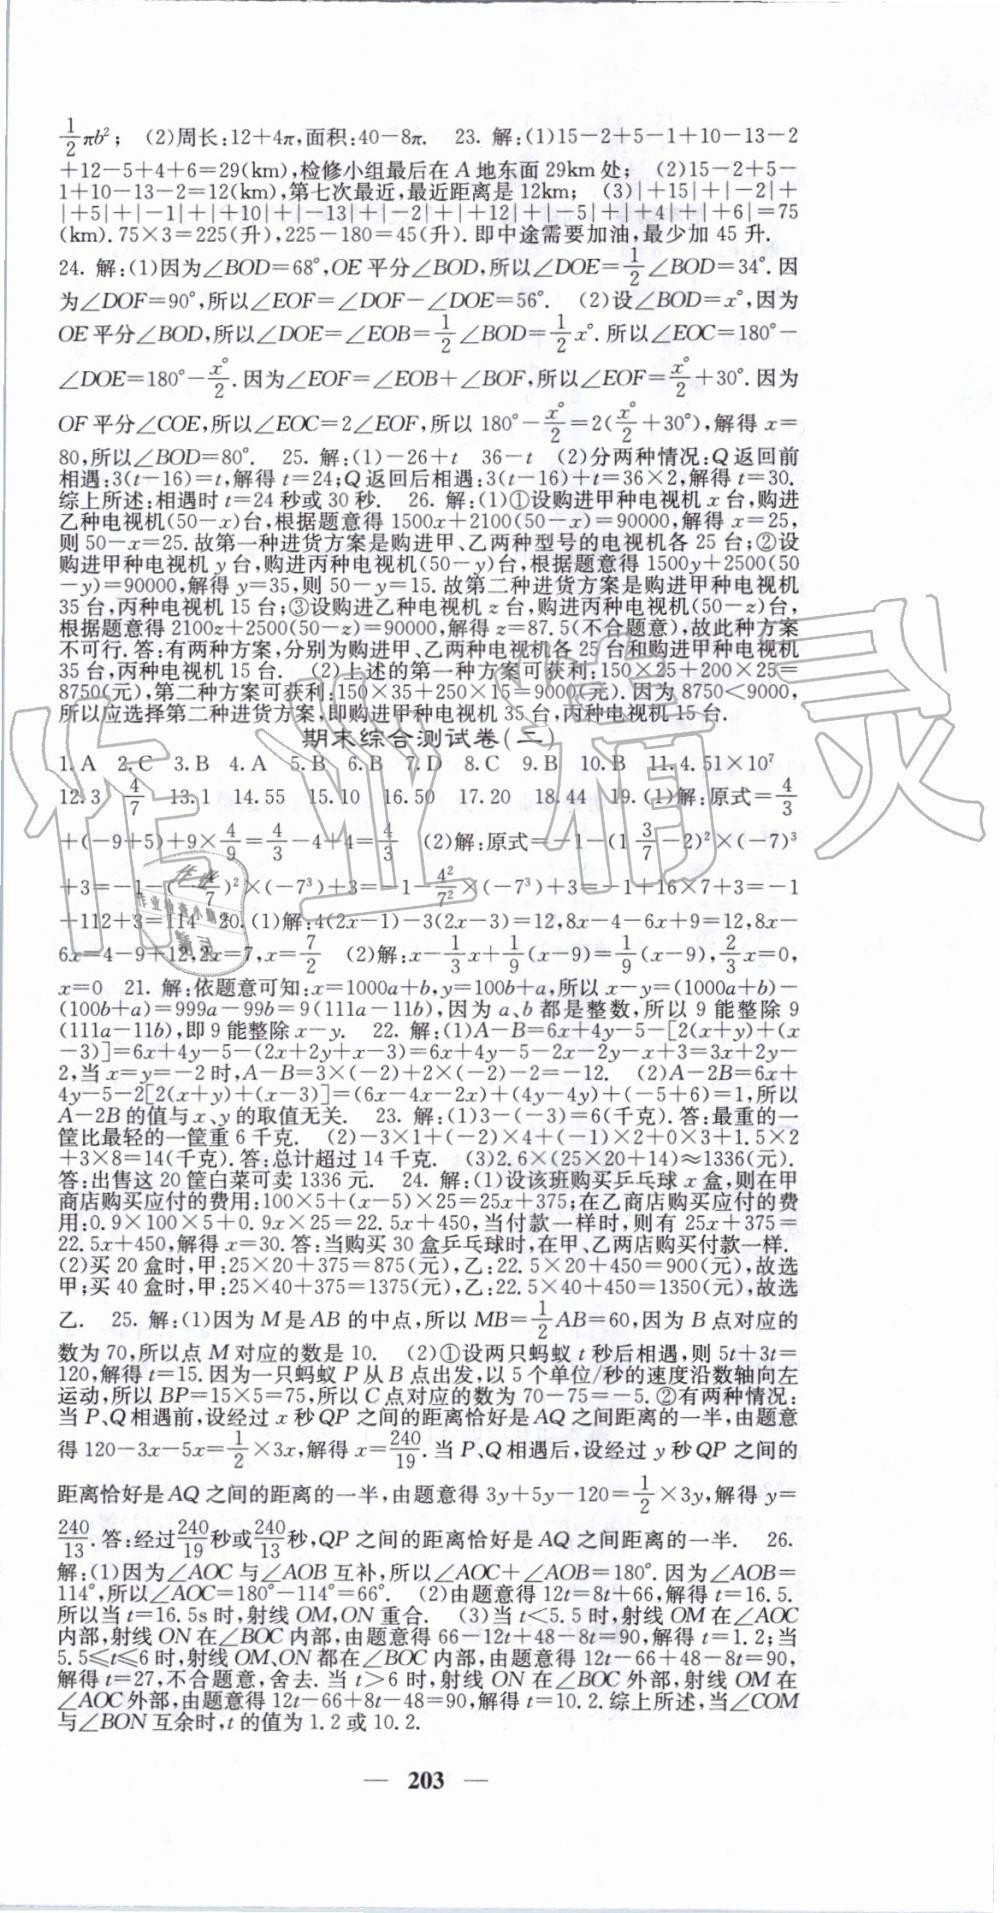 1/2πb²; (2)周长:12+4π,面积:40-8π. 23. 解:(1)15-2+5-1+10-13-2
+12-5+4+6=29(km),检修小组最后在 A 地东面 29km 处; (2)15-2+5-
1+10-13-2=12(km),第七次最近,最近距离是 12km; (3)|+15|+|-2|+
|+5|+|-1|+|+10|+|-13|+|-2|+|+12|+|-5|+|+4|+|+6|=75
(km). 75×3=225(升),225-180=45(升). 即中途需要加油,最少加 45 升.
24. 解:(1)因为∠BOD=68°,OE 平分∠BOD,所以∠DOE=1/2∠BOD=34°. 因
为∠DOF=90°,所以∠EOF=∠DOF-∠DOE=56°. (2)设∠BOD=x°,因为
OE 平分∠BOD,所以∠DOE=∠EOB=1/2∠BOD=1/2x°. 所以∠EOC=180°-
∠DOE=180°-x°/2. 因为∠EOF=∠EOB+∠BOF,所以∠EOF=x°/2+30°. 因为
OF 平分∠COE,所以∠EOC=2∠EOF,所以 180°-x°/2=2(x°/2+30°),解得 x=
80,所以∠BOD=80°. 25. 解:(1)-26+t 36-t (2)分两种情况:Q 返回前
相遇:3(t-16)=t,解得 t=24;Q 返回后相遇:3(t-16)+t=36×2,解得 t=30.
综上所述:相遇时 t=24 秒或 30 秒. 26. 解:(1)①设购进甲种电视机 x 台,购进
乙种电视机(50-x)台,根据题意得 1500x+2100(50-x)=90000,解得 x=25,
则 50-x=25. 故第一种进货方案是购进甲、乙两种型号的电视机各 25 台;②设
购进甲种电视机 y 台,购进丙种电视机(50-y)台,根据题意得 1500y+2500(50
-y)=90000,解得 y=35,则 50-y=15. 故第二种进货方案是购进甲种电视机
35 台,丙种电视机 15 台;③设购进乙种电视机 z 台,购进丙种电视机(50-z)台,
根据题意得 2100z+2500(50-z)=90000,解得 z=87.5(不合题意),故此种方案
不可行. 答:有两种方案,分别为购进甲、乙两种电视机各 25 台和购进甲种电视机
35 台,丙种电视机 15 台. (2)上述的第一种方案可获利:150×25+200×25=
8750(元),第二种方案可获利:150×35+250×15=9000(元). 因为 8750<9000,
所以应选择第二种进货方案,即购进甲种电视机 35 台,丙种电视机 15 台.
期末综合测试卷(二)
1. A 2. C 3. B 4. A 5. B 6. B 7. D 8. C 9. B 10. B 11. 4.51×10⁷
12. 3 4/7 13. 1 14. 55 15. 10 16. 50 17. 20 18. 44 19. (1)解:原式=4/3
+(-9+5)+9×4/9=4/3-4+4=4/3 (2)解:原式=-1-(1 3/7-2)²×(-7)³
+3=-1-(-4/7)²×(-7³)+3=-1-4²/7²×(-7³)+3=-1+16×7+3=-1
+112+3=114 20. (1)解:4(2x-1)-3(2x-3)=12,8x-4-6x+9=12,8x-
6x=4-9+12,2x=7,x=7/2 (2)解:x-1/3x+1/9(x-9)=1/9(x-9),2/3x=0,
x=0 21. 解:依题意可知:x=1000a+b,y=100b+a,所以 x-y=(1000a+b)-
(100b+a)=999a-99b=9(111a-11b),因为 a、b 都是整数,所以 9 能整除 9
(111a-11b),即 9 能整除 x-y. 22. 解:(1)A-B=6x+4y-5-[2(x+y)+(x
-3)]=6x+4y-5-(2x+2y+x-3)=6x+4y-5-2x-2y-x+3=3x+2y-
2,当 x=y=-2 时,A-B=3×(-2)+2×(-2)-2=-12. (2)A-2B=6x+
4y-5-2[2(x+y)+(x-3)]=(6x-4x-2x)+(4y-4y)+(-5+6)=1,所以
A-2B 的值与 x、y 的取值无关. 23. 解:(1)3-(-3)=6(千克). 答:最重的一
筐比最轻的一筐重 6 千克. (2)-3×1+(-2)×4+(-1)×2+0×3+1.5×2
+3×8=14(千克). 答:总计超过 14 千克. (3)2.6×(25×20+14)≈1336(元).
答:出售这 20 筐白菜可卖 1336 元. 24. 解:(1)设该班购买乒乓球 x 盒,则在甲
商店购买应付的费用:100×5+(x-5)×25=25x+375;在乙商店购买应付的费
用:0.9×100×5+0.9x×25=22.5x+450,当付款一样时,则有 25x+375=
22.5x+450,解得 x=30. 答:当购买 30 盒乒乓球时,在甲、乙两店购买付款一样.
(2)买 20 盒时,甲:25×20+375=875(元),乙:22.5×20+450=900(元),故选
甲;买 40 盒时,甲:25×40+375=1375(元),乙:22.5×40+450=1350(元),故选
乙. 25. 解:(1)因为 M 是 AB 的中点,所以 MB=1/2AB=60,因为 B 点对应的
数为 70,所以点 M 对应的数是 10. (2)①设两只蚂蚁 t 秒后相遇,则 5t+3t=
120,解得 t=15. 因为一只蚂蚁 P 从 B 点出发,以 5 个单位/秒的速度沿数轴向左
运动,所以 BP=15×5=75,所以 C 点对应的数为 70-75=-5. ②有两种情况:
当 P、Q 相遇前,设经过 x 秒 QP 之间的距离恰好是 AQ 之间距离的一半,由题意
得 120-3x-5x=1/2×3x,解得 x=240/19. 当 P、Q 相遇后,设经过 y 秒 QP 之间的
距离恰好是 AQ 之间的距离的一半,由题意得 3y+5y-120=1/2×3y,解得 y=
240/13. 答:经过240/19秒或240/13秒,QP 之间的距离恰好是 AQ 之间距离的一半. 26.
解:(1)因为∠AOC 与∠AOB 互补,所以∠AOC+∠AOB=180°. 因为∠AOB=
114°,所以∠AOC=180°-114°=66°. (2)由题意得 12t=8t+66,解得 t=16.5.
所以当 t=16.5s 时,射线 OM,ON 重合. (3)当 t<5.5 时,射线 OM 在∠AOC
内部,射线 ON 在∠BOC 内部,由题意得 66-12t+48-8t=90,解得 t=1.2;当
5.5≤t≤6 时,射线 OM、ON 都在∠BOC 内部,由题意得 12t-66+48-8t=90,
解得 t=27,不合题意,舍去. 当 t>6 时,射线 ON 在∠BOC 外部,射线 OM 在
∠AOC 外部,由题意得 12t-66+8t-48=90,解得 t=10.2. 综上所述,当∠COM
与∠BON 互余时,t 的值为 1.2 或 10.2.
— 203 —
作业精灵